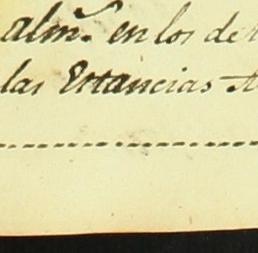 alm.^e en los de
las Estancias